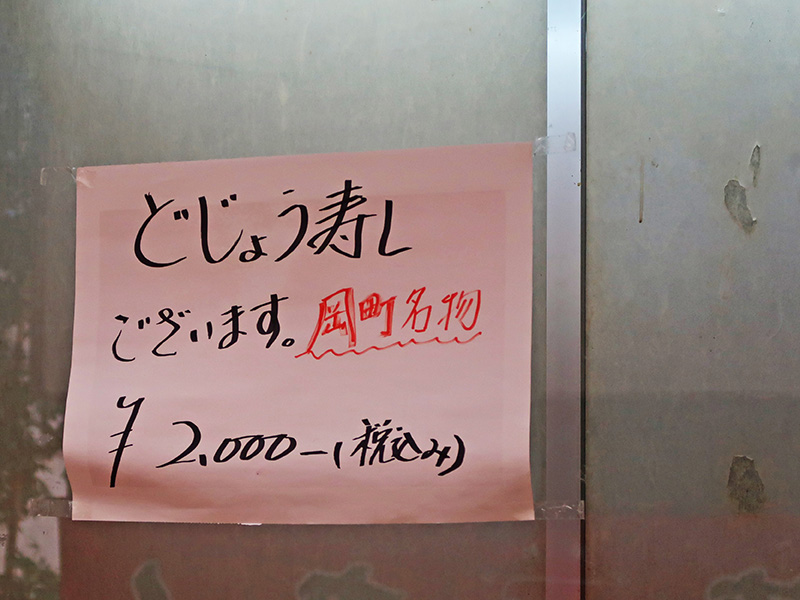 どじょう寿し
ございます。岡町名物
¥2,000-(税込み)